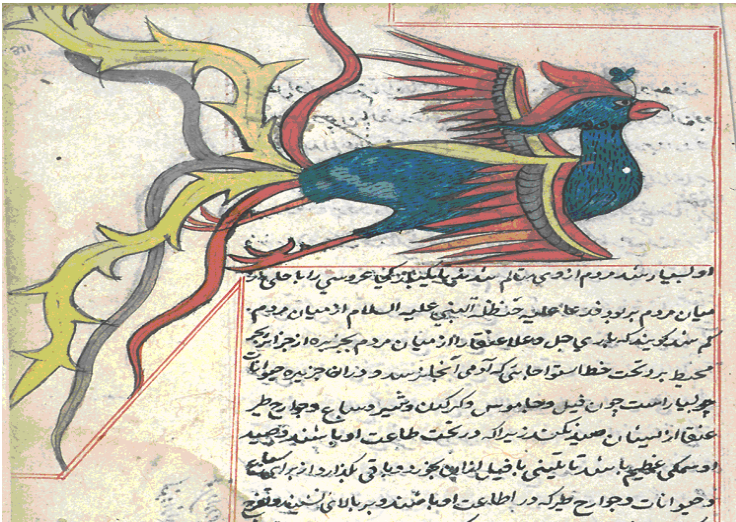 او بسیار شد مردم از وی متالم شدند تا یکی روز عروسی را با حلی از
میان مردم بربود فدعا علیه حنظلة النبی علیه السلام از میان مردم
کم شد گویند که باری جل و علا عنقا را از میان مردم بجزیره از جزایر بحر
محیط برد تحت خط استوا جایی که آدمی آنجا نرسد و در آن جزیره حیوانات
بسیار است چون فیل و جاموس و کرکدن و شیر و سباع و جوارح طیر
عنقا از ایشان صید نکند زیرا که در تحت طاعت او باشند و صید
او سمکی عظیم باشد یا تنینی یا فیل از آن بخورد و باقی بگذارد از برای سباع
و حیوانات و جوارح طیر که در اطاعت او باشند و بر بالای نشیند و تفرج